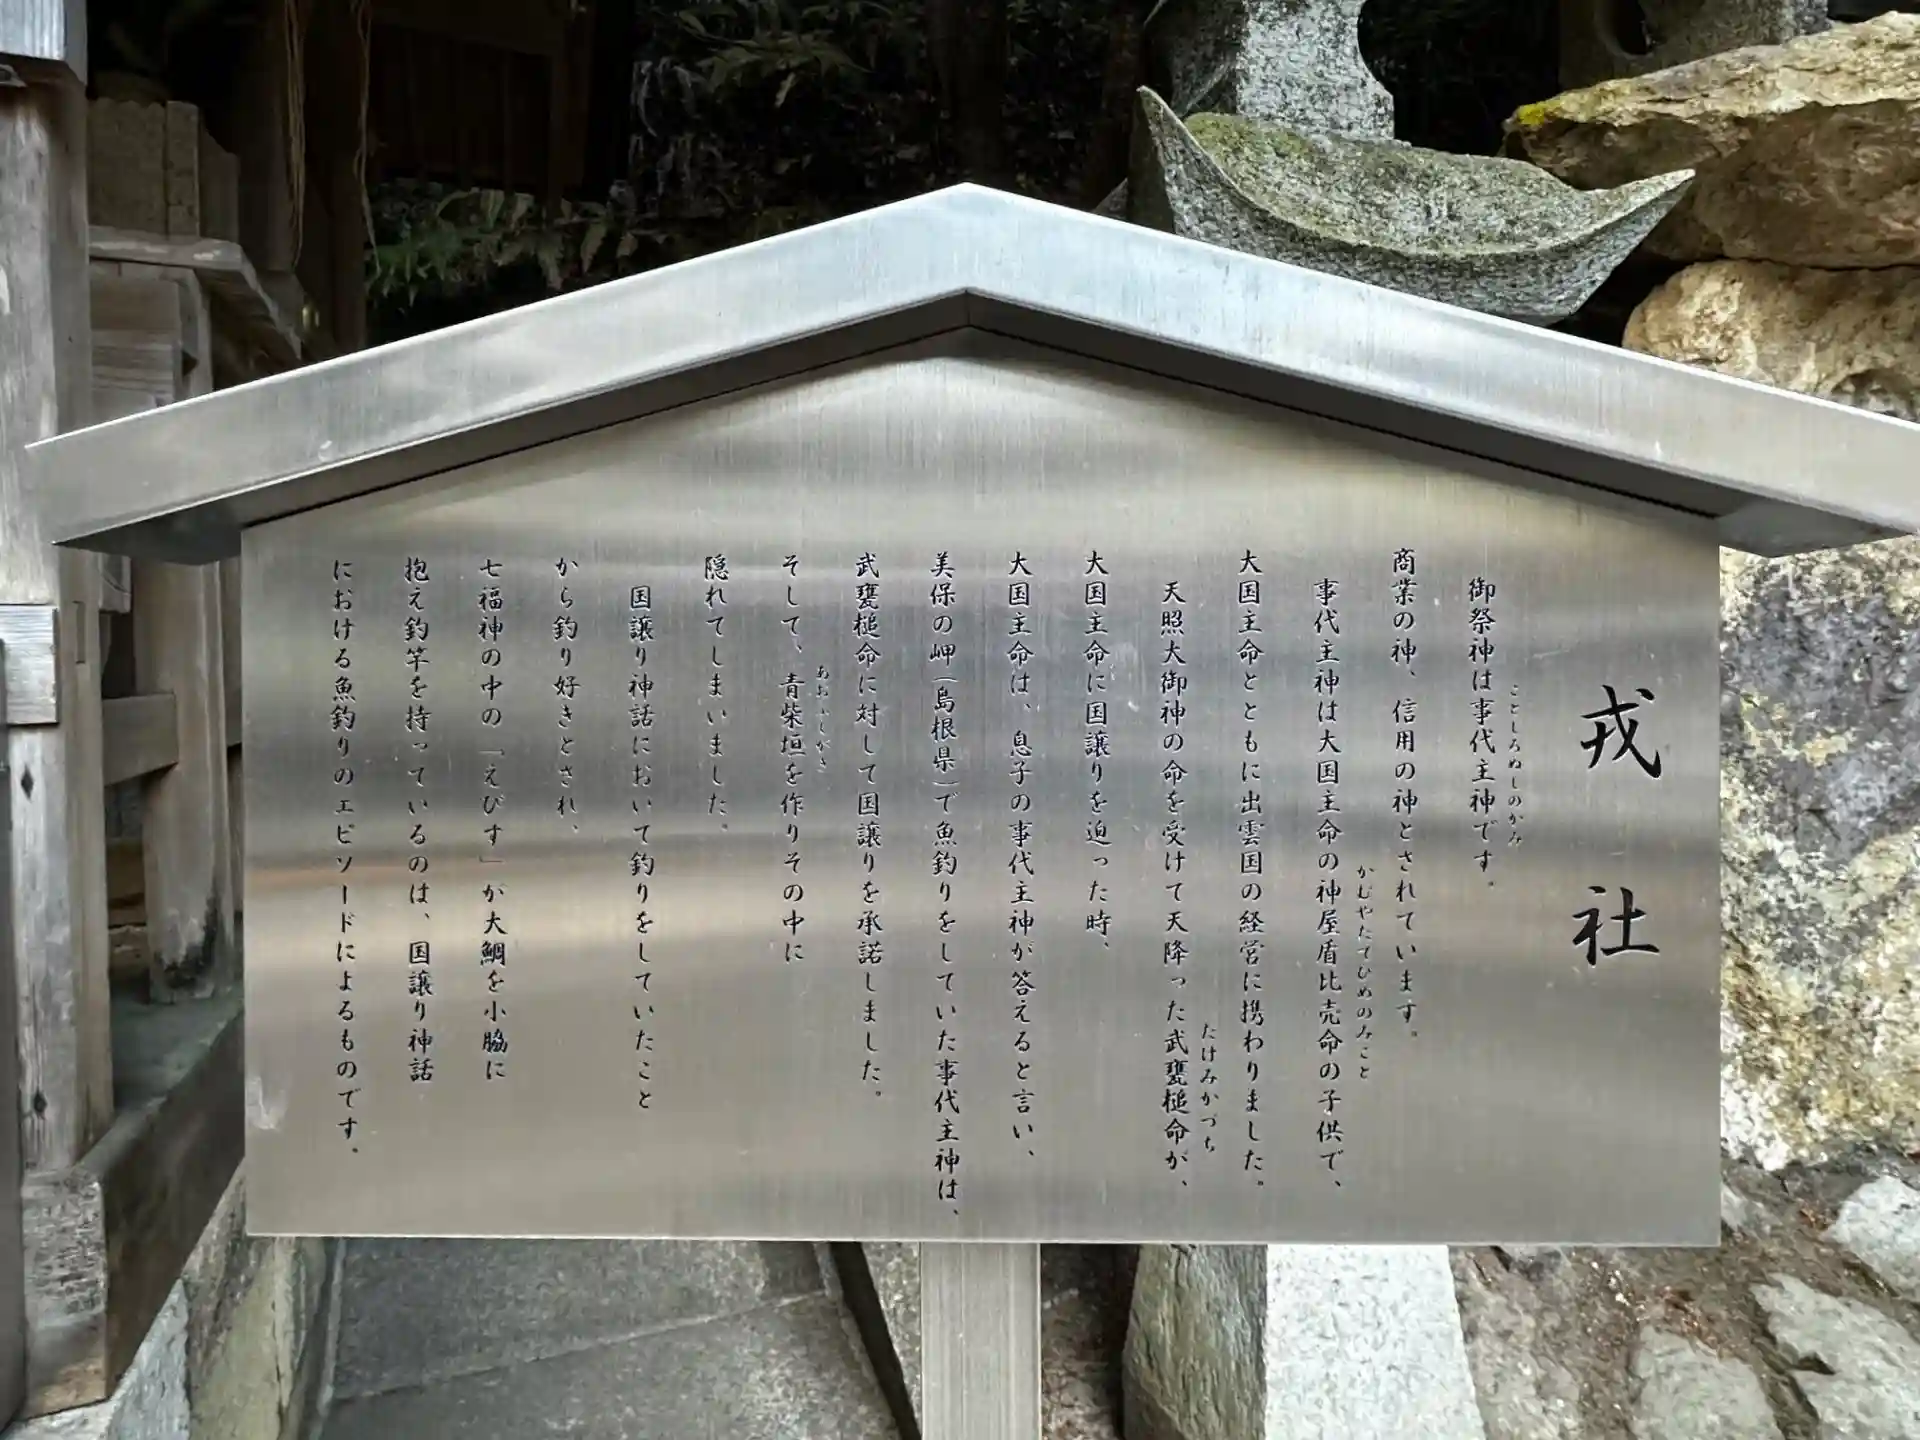 戎社
御祭神は事代主神です。
ことしろぬしのかみ
商業の神、信用の神とされています。
事代主神は大国主命の神屋盾比売命の子供で、
かむやたてひめのみこと
大国主命とともに出雲国の経営に携わりました。
天照大御神の命を受けて天降った武甕槌命が、
たけみかづち
大国主命に国譲りを迫った時、
大国主命は、息子の事代主神が答えると言い、
美保の岬(島根県)で魚釣りをしていた事代主神は、
武甕槌命に対して国譲りを承諾しました。
そして、青柴垣を作りその中に
あおふしがき
隠れてしまいました。
国譲り神話において釣りをしていたこと
から釣り好きとされ、
七福神の中の「えびす」が大鯛を小脇に
抱え釣竿を持っているのは、国譲り神話
における魚釣りのエピソードによるものです。